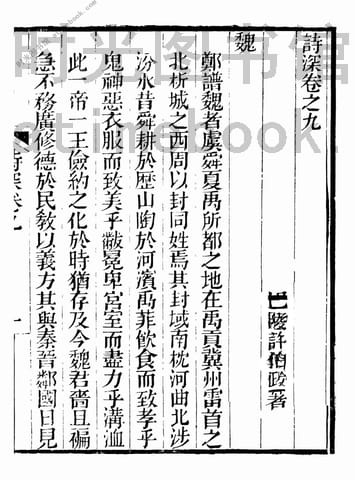 詩深卷之九
巴陵許伯政著
魏
鄭譜魏者虞舜夏禹所都之地在禹貢冀州雷首之
北析城之西周以封同姓焉其封域南枕河曲北涉
汾水昔舜耕於歷山陶於河濱禹菲飲食而致孝乎
鬼神惡衣服而致美乎黻冕卑宮室而盡力乎溝洫
此一帝一王儉約之化於時猶存及今魏君嗇且褊
急不務廣修德於民敎以義方其與秦晉鄰國日見
詩深卷九
一